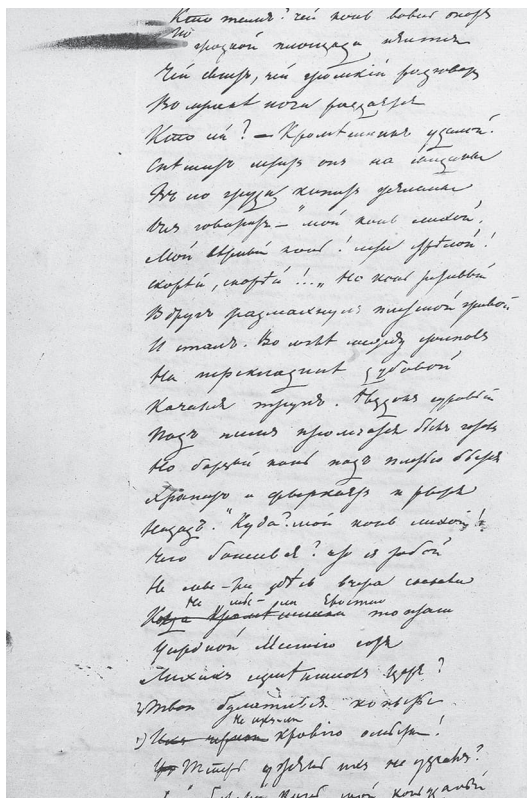 Кто тамъ? Чей конь вовесь опоръ
По грозной площади несется
Чей свистъ, чей громкій разговоръ
Во мракѣ ночи раздается
Кто сей? — Кромѣшникъ удалой.
Спѣшитъ, летитъ онъ на свиданье
Въ его груди кипитъ желанье
Онъ говоритъ — "мой конь лихой,
Мой вѣрный конь! лети стрѣлой!
скорѣй, скорѣй!..." Но конь ретивый
Вдругъ размахнулъ плетеной гривой
И сталъ. Во мглѣ между столповъ
На перекладинѣ дубовой
Качался трупъ. Ѣздокъ суровый
Подъ нимъ промчаться былъ готовъ
Но борзый конь подъ плетью бьется
Храпитъ и фыркаетъ и рвется
Назадъ. "Куда? мой конь лихой!
Чего боишься? что съ тобой
Не мы-ли здѣсь вчера скакали
Не мы-ли яростно топтали
Усердной местію горя
Лихихъ измѣнниковъ царя?
2) Твои булатныя копыты
1) Не ихъ-ли кровію омыты!
Теперь ужель ихъ не узналъ?